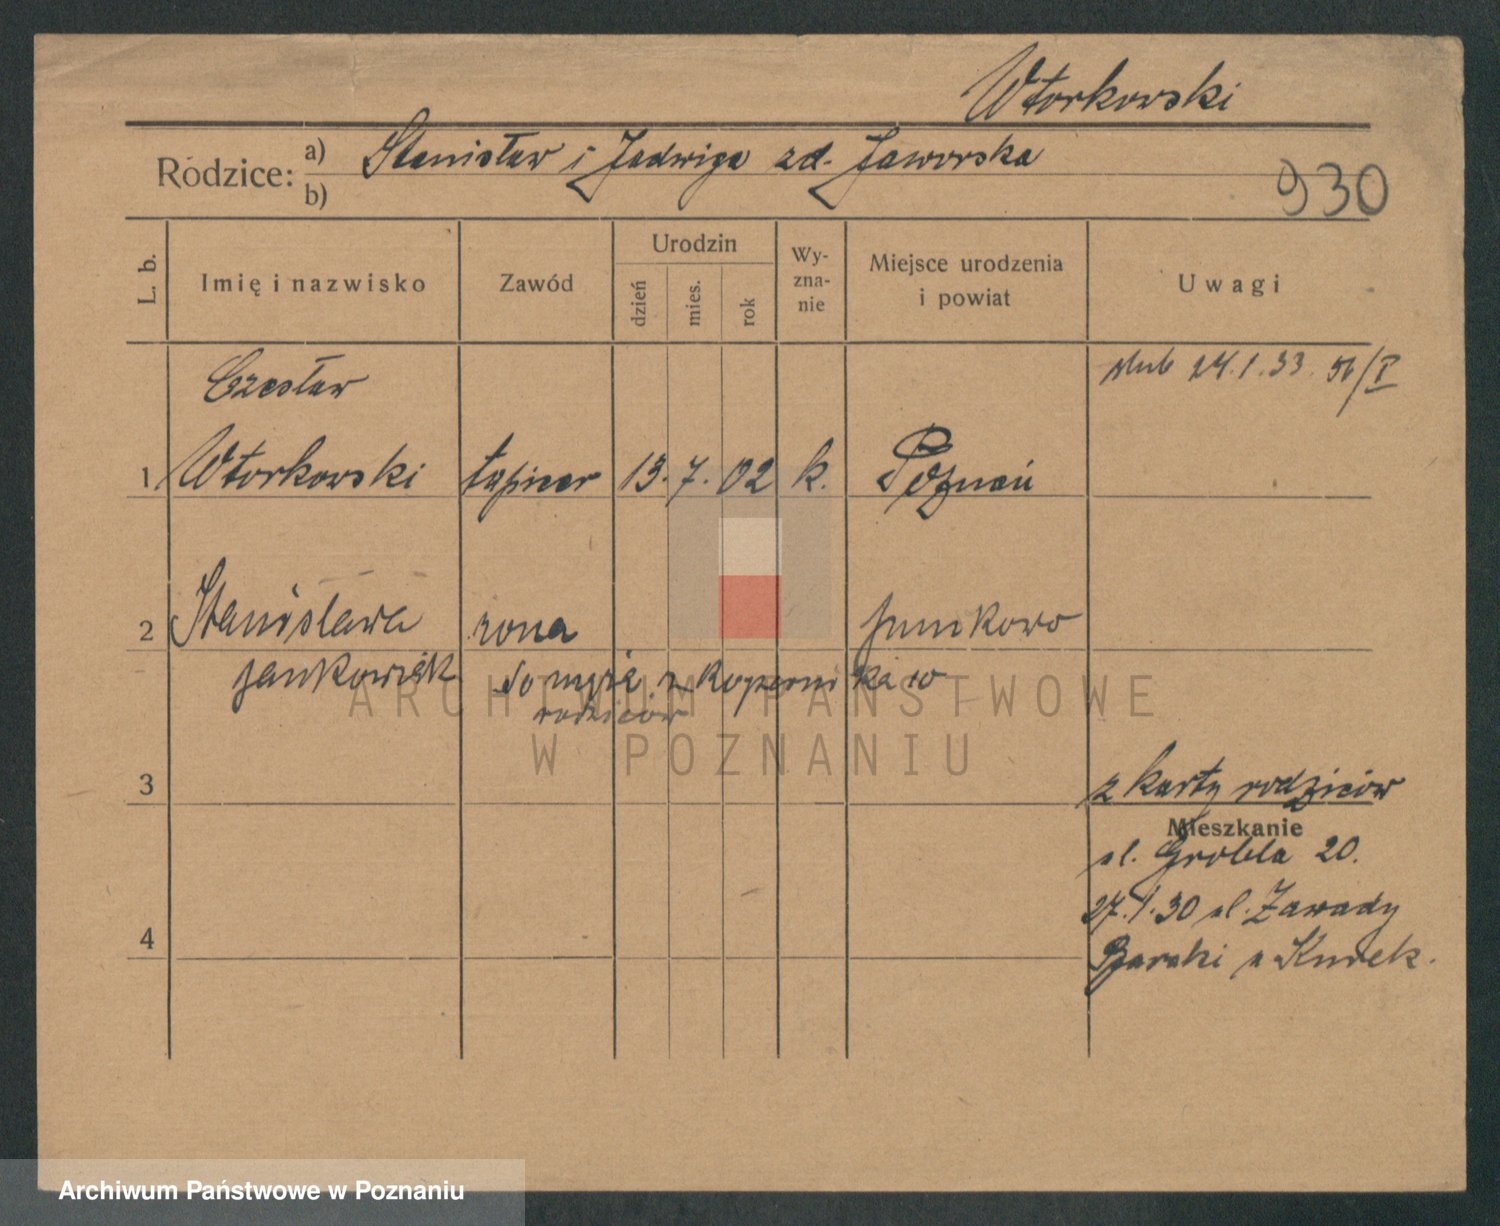 Wtorkowski
Rodzice: a) Stanisław i Jadwiga zd. Jaworska
b)
930
L. b.
Imię i nazwisko
Zawód
Urodzin
dzień
mies.
rok
Wy-
zna-
nie
Miejsce urodzenia
i powiat
Uwagi
Czesław
ślub 24.1.33.
1 Wtorkowski tapicer 13. 7. 02 k. Poznań
2 Stanisława żona Junikowo
Jankowiak
rodziców
ARCHIWUM PAŃSTWOWE
W POZNANIU
3
z karty rodziców
Mieszkanie
ul. Grobla 20.
4
27.1.30 ul. Zawady
Baraki u Kurek.
Archiwum Państwowe w Poznaniu